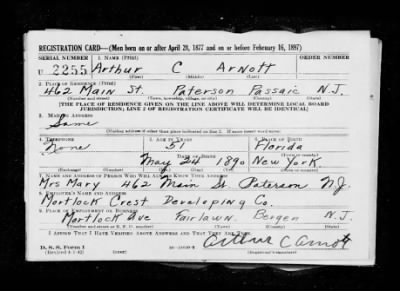 REGISTRATION CARD—(Men born on or after April 28, 1877 and on or before February 16, 1897)
SERIAL NUMBER 1. NAME (Print) ORDER NUMBER
U 2255 Arthur C Arnott
(First) (Middle) (Last)
2. PLACE OF RESIDENCE (Print)
462 Main St. Paterson Passaic N.J.
(Number and street) (Town, township, village, or city) (County) (State)
[THE PLACE OF RESIDENCE GIVEN ON THE LINE ABOVE WILL DETERMINE LOCAL BOARD
JURISDICTION; LINE 2 OF REGISTRATION CERTIFICATE WILL BE IDENTICAL]
3. MAILING ADDRESS
Same
[Mailing address if other than place indicated on line 2. If same insert word same]
4. TELEPHONE 5. AGE IN YEARS 6. PLACE OF BIRTH
None 51 Florida
DATE OF BIRTH (Town or county)
May 24 1890 New York.
(Exchange) (Number) (Mo.) (Day) (Yr.) (State or country)
7. NAME AND ADDRESS OF PERSON WHO WILL ALWAYS KNOW YOUR ADDRESS
Mrs Mary 462 Main St Paterson N.J.
8. EMPLOYER'S NAME AND ADDRESS
Mortlock Crest Developing Co.
9. PLACE OF EMPLOYMENT OR BUSINESS
Mortlock Ave Fairlawn. Bergen N.J.
(Number and street or R. F. D. number) (Town) (County) (State)
I AFFIRM THAT I HAVE VERIFIED ABOVE ANSWERS AND THAT THEY ARE TRUE.
Arthur C Arnott
D. S. S. Form 1
(Revised 4-1-42) (over) (Registrant's signature)